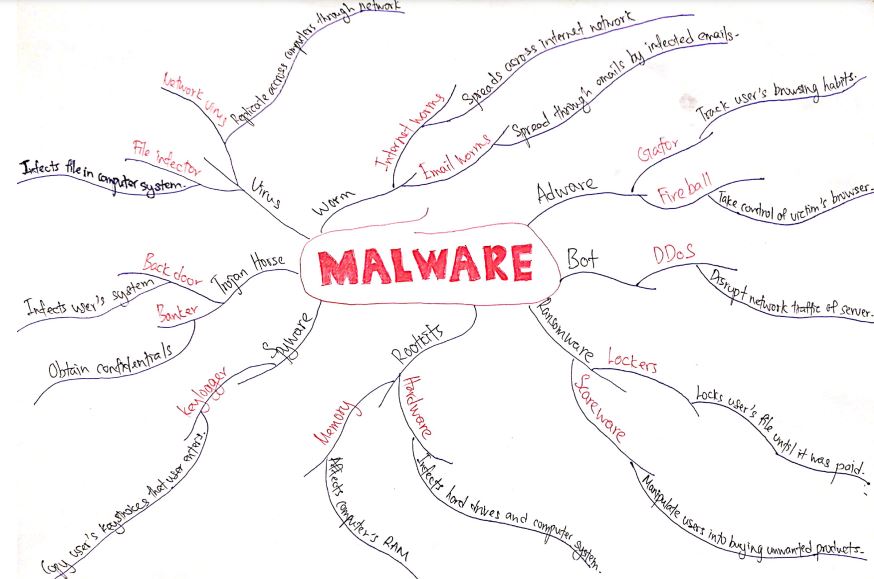 MALWARE
Virus
Network virus
Replicate across computers through network
File infector
Infects file in computer system.
Worm
Internet worms
Spreads across internet network
Email worms
Spread through emails by infected emails.
Adware
Gator
Track user's browsing habits.
Fireball
Take control of victim's browser.
Bot
DDoS
Disrupt network traffic of server.
Ransomware
Lockers
Locks user's file until it was paid.
Scareware
Manipulate users into buying unwanted products.
Rootkits
Hardware
Infects hard drives and computer system.
Memory
Affects computer's RAM
Spyware
Keylogger
Copy user's keystrokes that user enters.
Trojan Horse
Backdoor
Infects user's system
Banker
Obtain confidentials